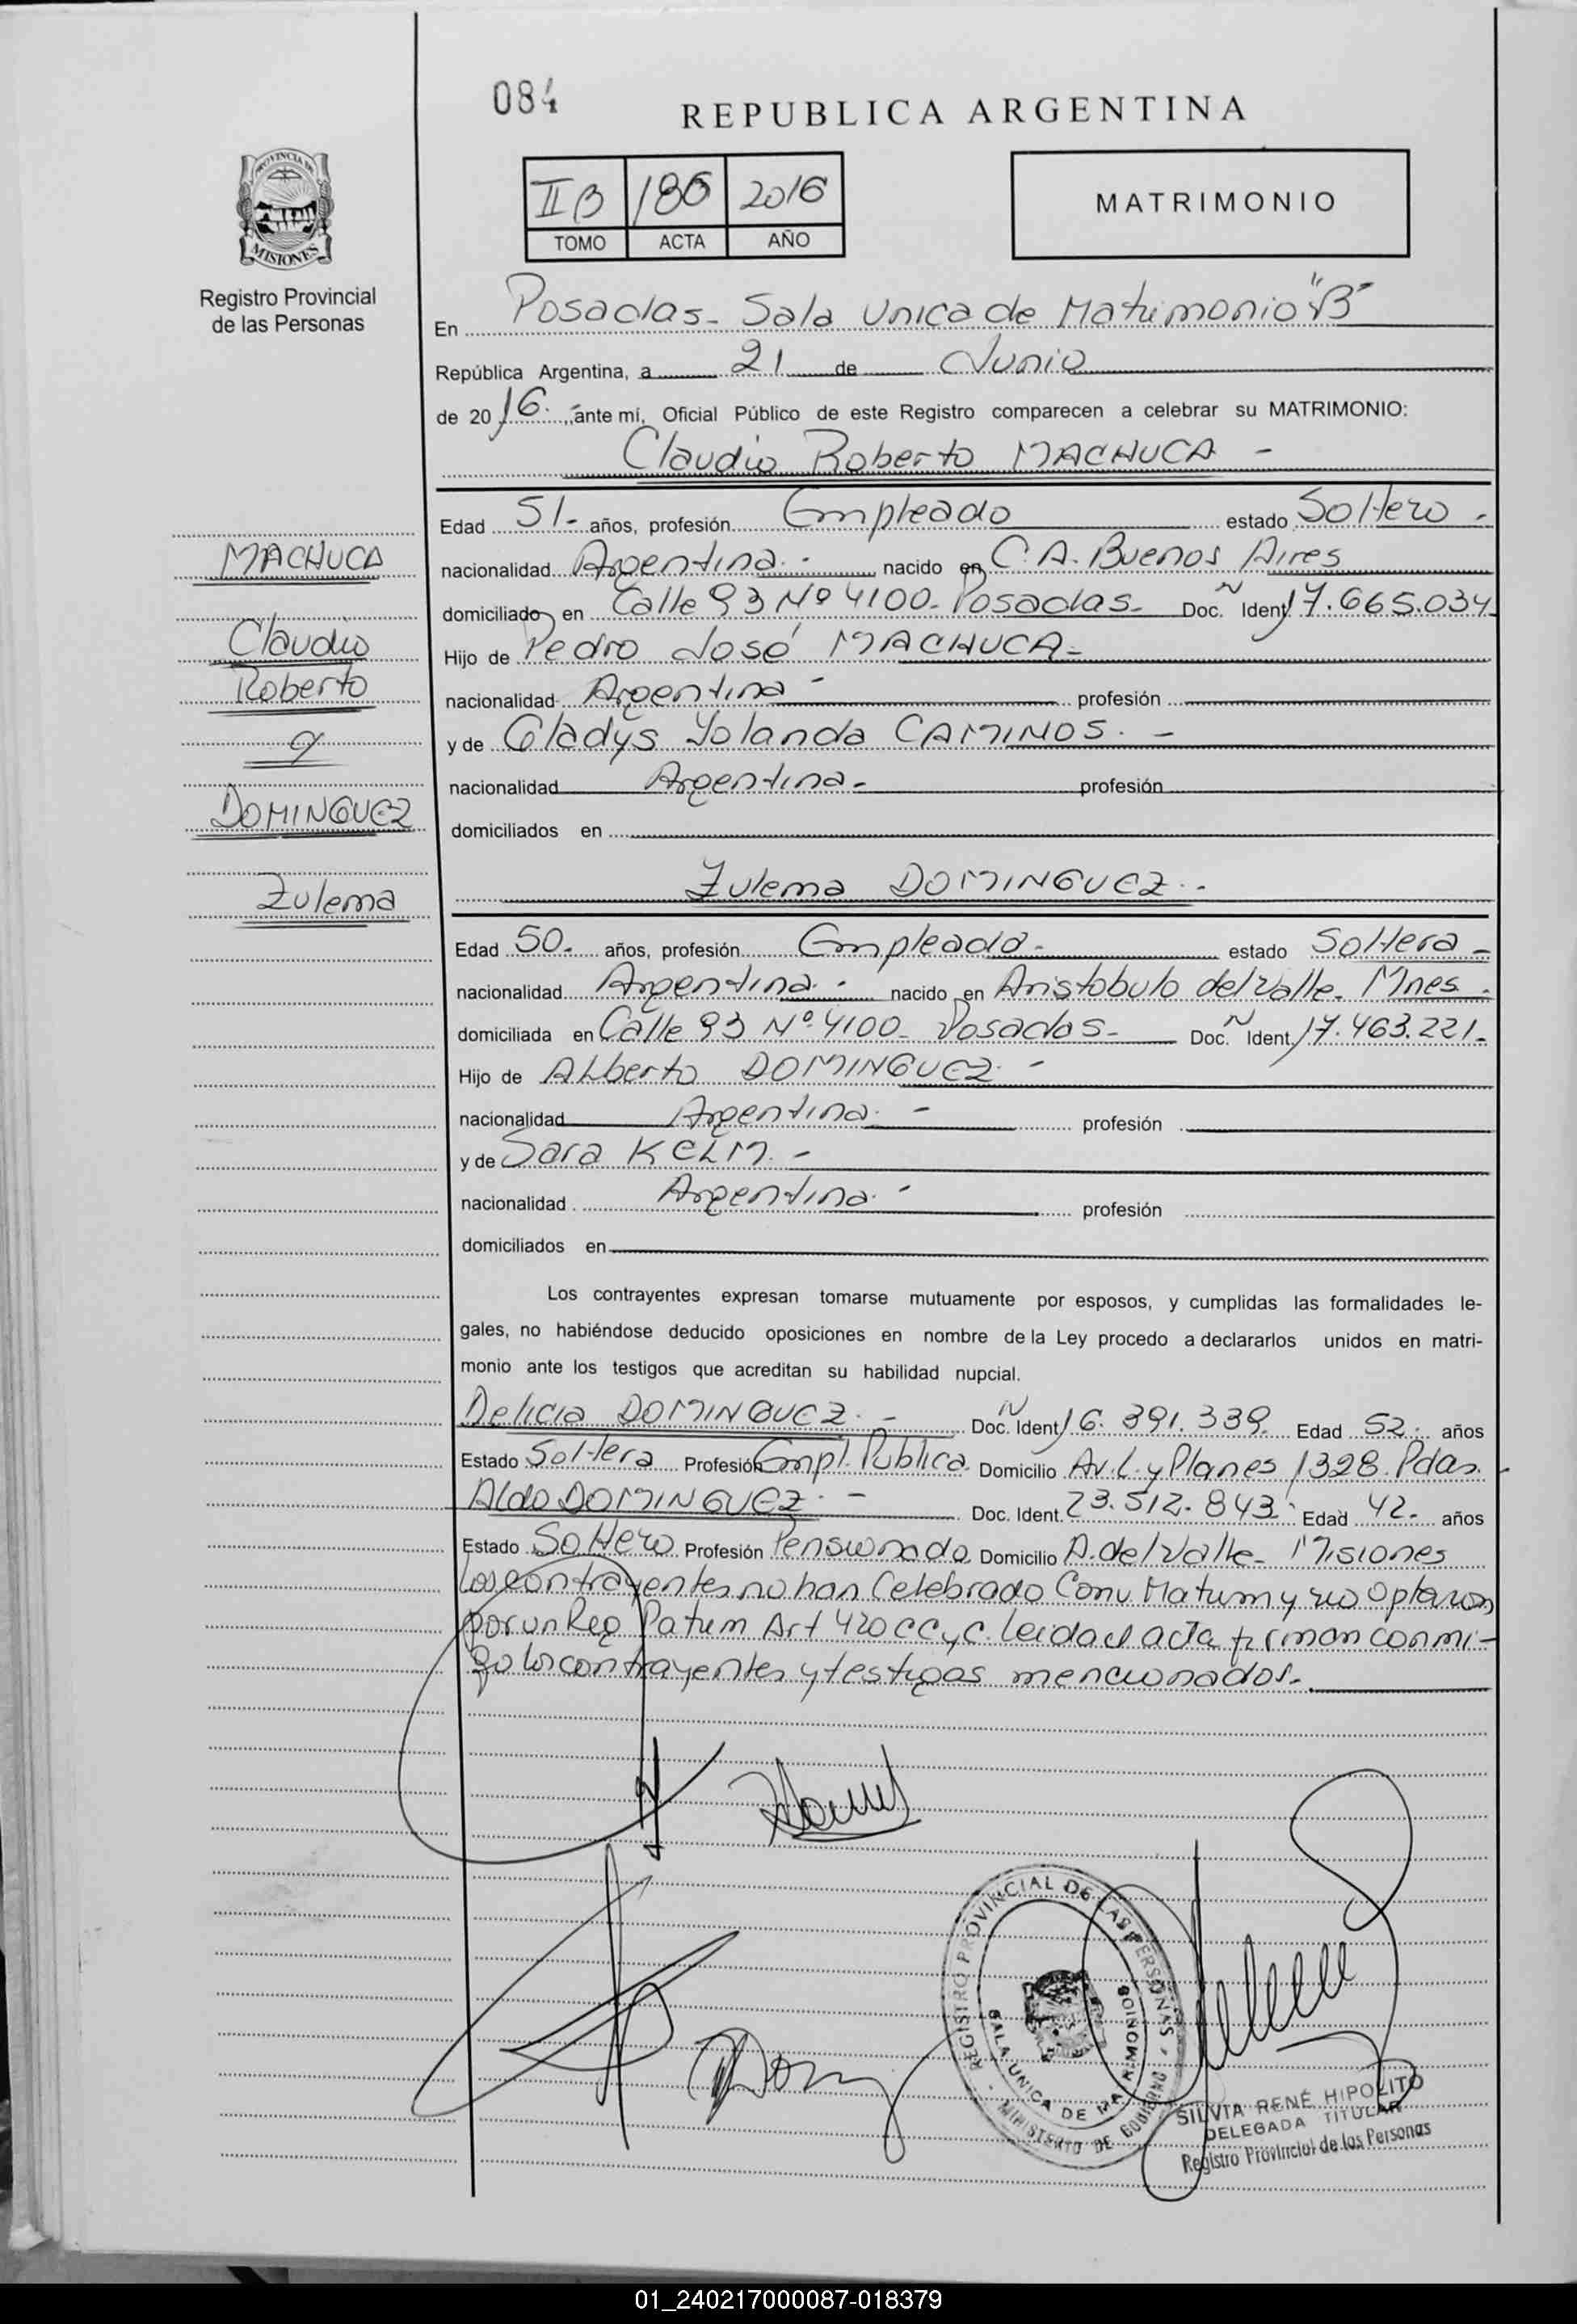 084
REPUBLICA ARGENTINA
PROVINCIA DE
MISIONES
Registro Provincial
de las Personas
II B 186 2016
TOMO ACTA AÑO
MATRIMONIO
En Posadas- Sala Unica de Matrimonio "B"
República Argentina, a 21 de Junio
de 2016. ante mí, Oficial Público de este Registro comparecen a celebrar su MATRIMONIO:
Claudio Roberto MACHUCA -
Edad 51- años, profesión Empleado estado Soltero -
MACHUCA
nacionalidad Argentina. - nacido en C.A. Buenos Aires
domiciliado en Calle 93 Nº 4100- Posadas- Doc. N Ident. 17.665.034
Claudio
Hijo de Pedro José MACHUCA-
Roberto
nacionalidad Argentina - profesión
y
y de Gladys Yolanda CAMINOS. -
nacionalidad Argentina- profesión
DOMINGUEZ
domiciliados en
Zulema
Zulema DOMINGUEZ. -
Edad 50- años, profesión Empleada- estado Soltera -
nacionalidad Argentina. - nacido en Aristobulo del Valle- Mnes -
domiciliada en Calle 93 Nº 4100- Posadas- Doc. N Ident. 17.463.221-
Hijo de Alberto DOMINGUEZ. -
nacionalidad Argentina. - profesión
y de Sara KELM. -
nacionalidad Argentina. - profesión
domiciliados en
Los contrayentes expresan tomarse mutuamente por esposos, y cumplidas las formalidades le-
gales, no habiéndose deducido oposiciones en nombre de la Ley procedo a declararlos unidos en matri-
monio ante los testigos que acreditan su habilidad nupcial.
Delicia DOMINGUEZ. - Doc. N Ident. 16.391.339. Edad 52- años
Estado Soltera Profesión Empl. Publica Domicilio Av. L. y Planes 1328. Pdas.
Aldo DOMINGUEZ. - Doc. Ident. 23.512.843 Edad 42- años
Estado Soltero Profesión Pensionado Domicilio A. del Valle- Misiones
Los contrayentes no han Celebrado Conv. Matrim y no Optaron
por un Reg Patrim Art 420 CCyC. Leida el acta firman conmi-
go los contrayentes y testigos mencionados.-
REGISTRO PROVINCIAL DE LAS PERSONAS
SALA UNICA DE MATRIMONIOS
MINISTERIO DE GOBIERNO
SILVIA RENÉ HIPOLITO
DELEGADA TITULAR
Registro Provincial de las Personas
01_240217000087-018379